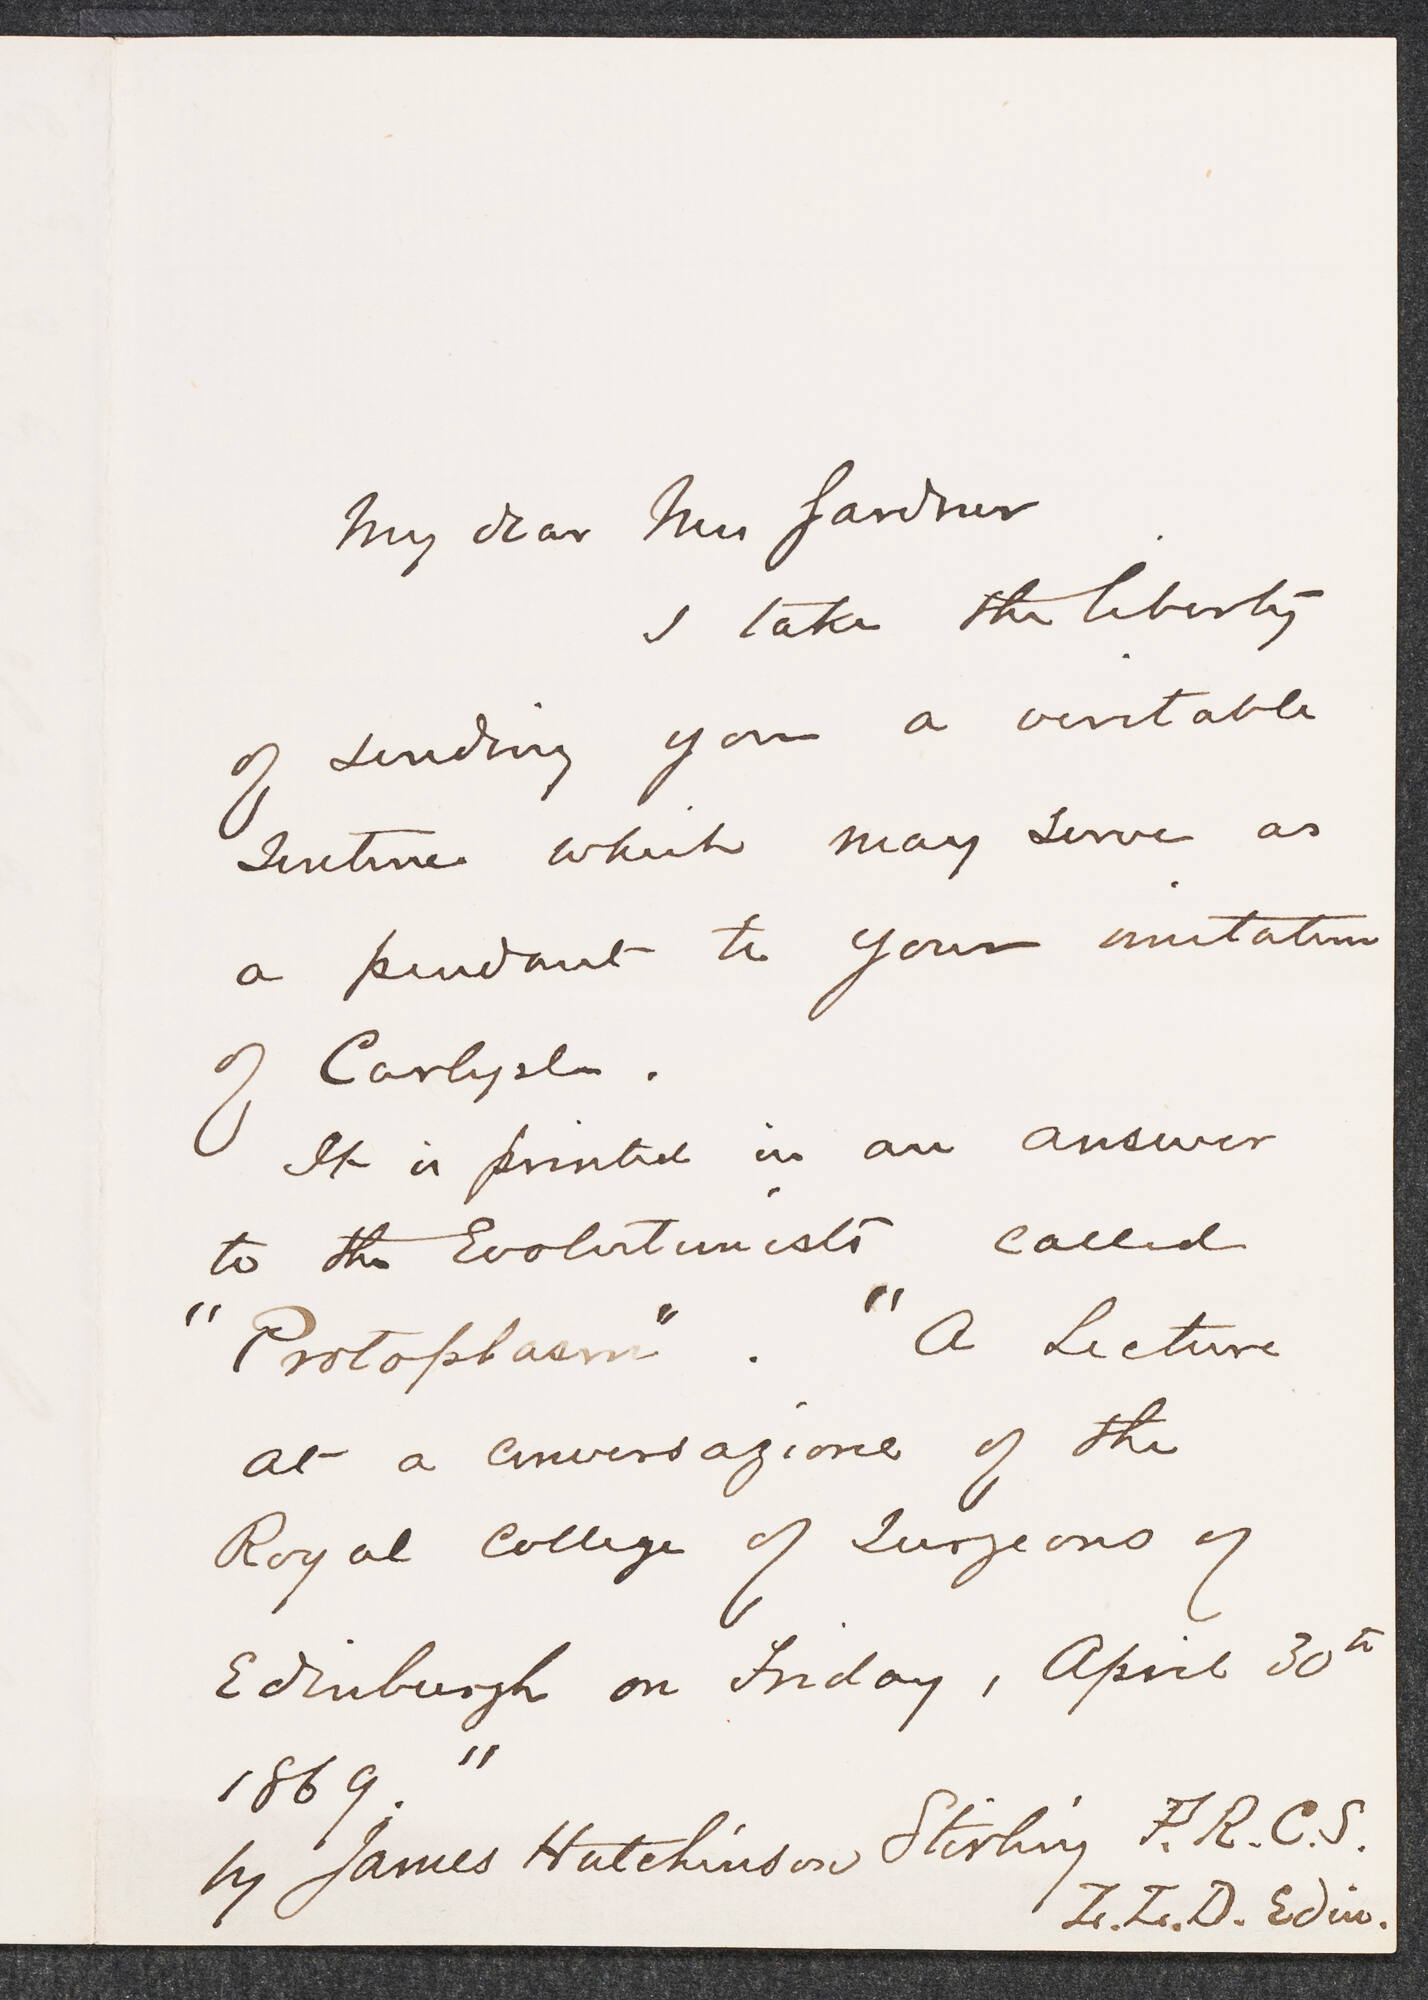 My dear Mrs Gardner
I take the liberty
of sending you a veritable
sentence which may serve as
a pendant to your imitation
of Carlyle.
It is printed in an answer
to the Evolutionists called
"Protoplasm". "A Lecture
at a conversazione of the
Royal College of Surgeons of
Edinburgh on Friday, April 30th
1869."
by James Hutchinson Stirling F.R.C.S.
L.L.D. Edin.